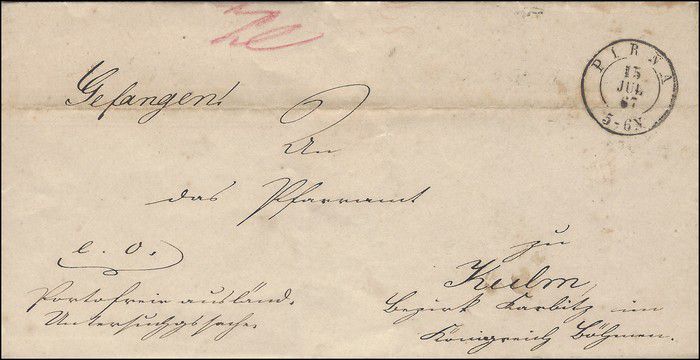 PIRNA
15
JUL
67
5-6N
Gefangen!
An
das Pfarramt
zu
Kulm,
Bezirk Karbitz im
Königreich Böhmen.
e. o.
Portofreie ausländ.
Untersuchgssache.